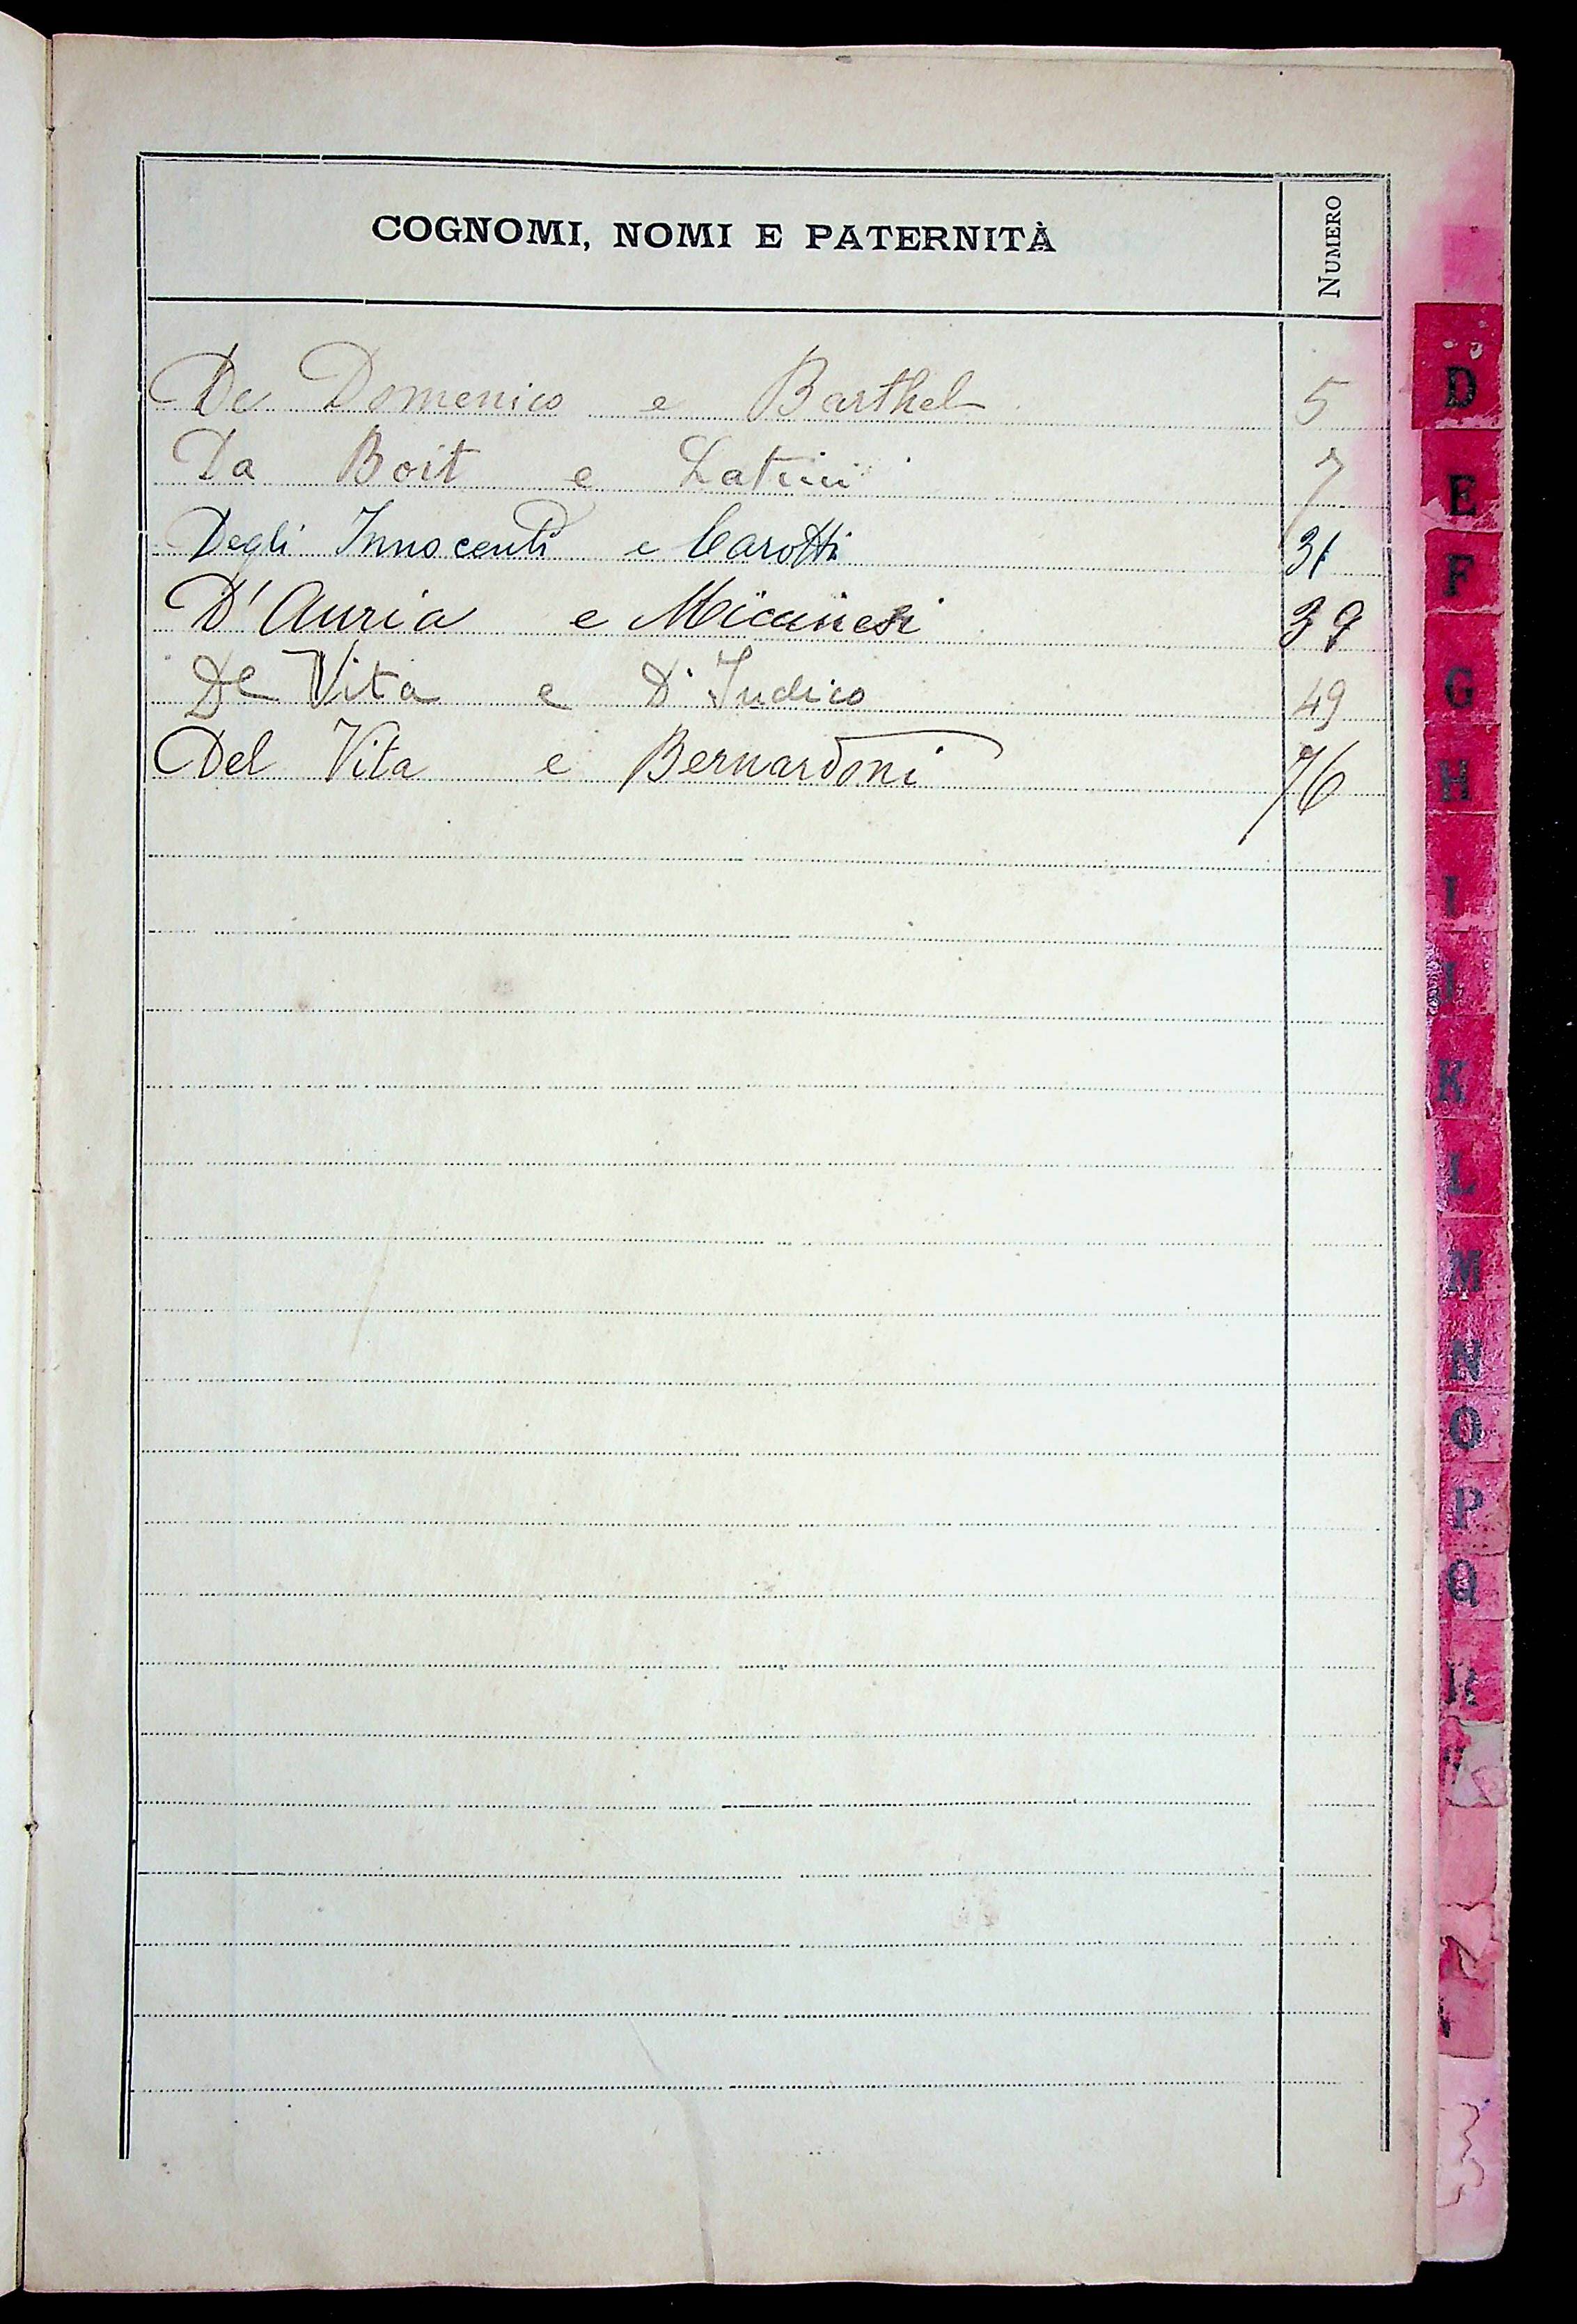 COGNOMI, NOMI E PATERNITÀ NUMERO
De Domenico e Barthel 5
Da Boit e Latini 7
Degli Innocenti e Carotti 31
D'Auria e 39
De Vita e D'Iudico 49
Del Vita e Bernardoni 76
D
E
F
G
H
I
J
K
L
M
N
O
P
Q
R